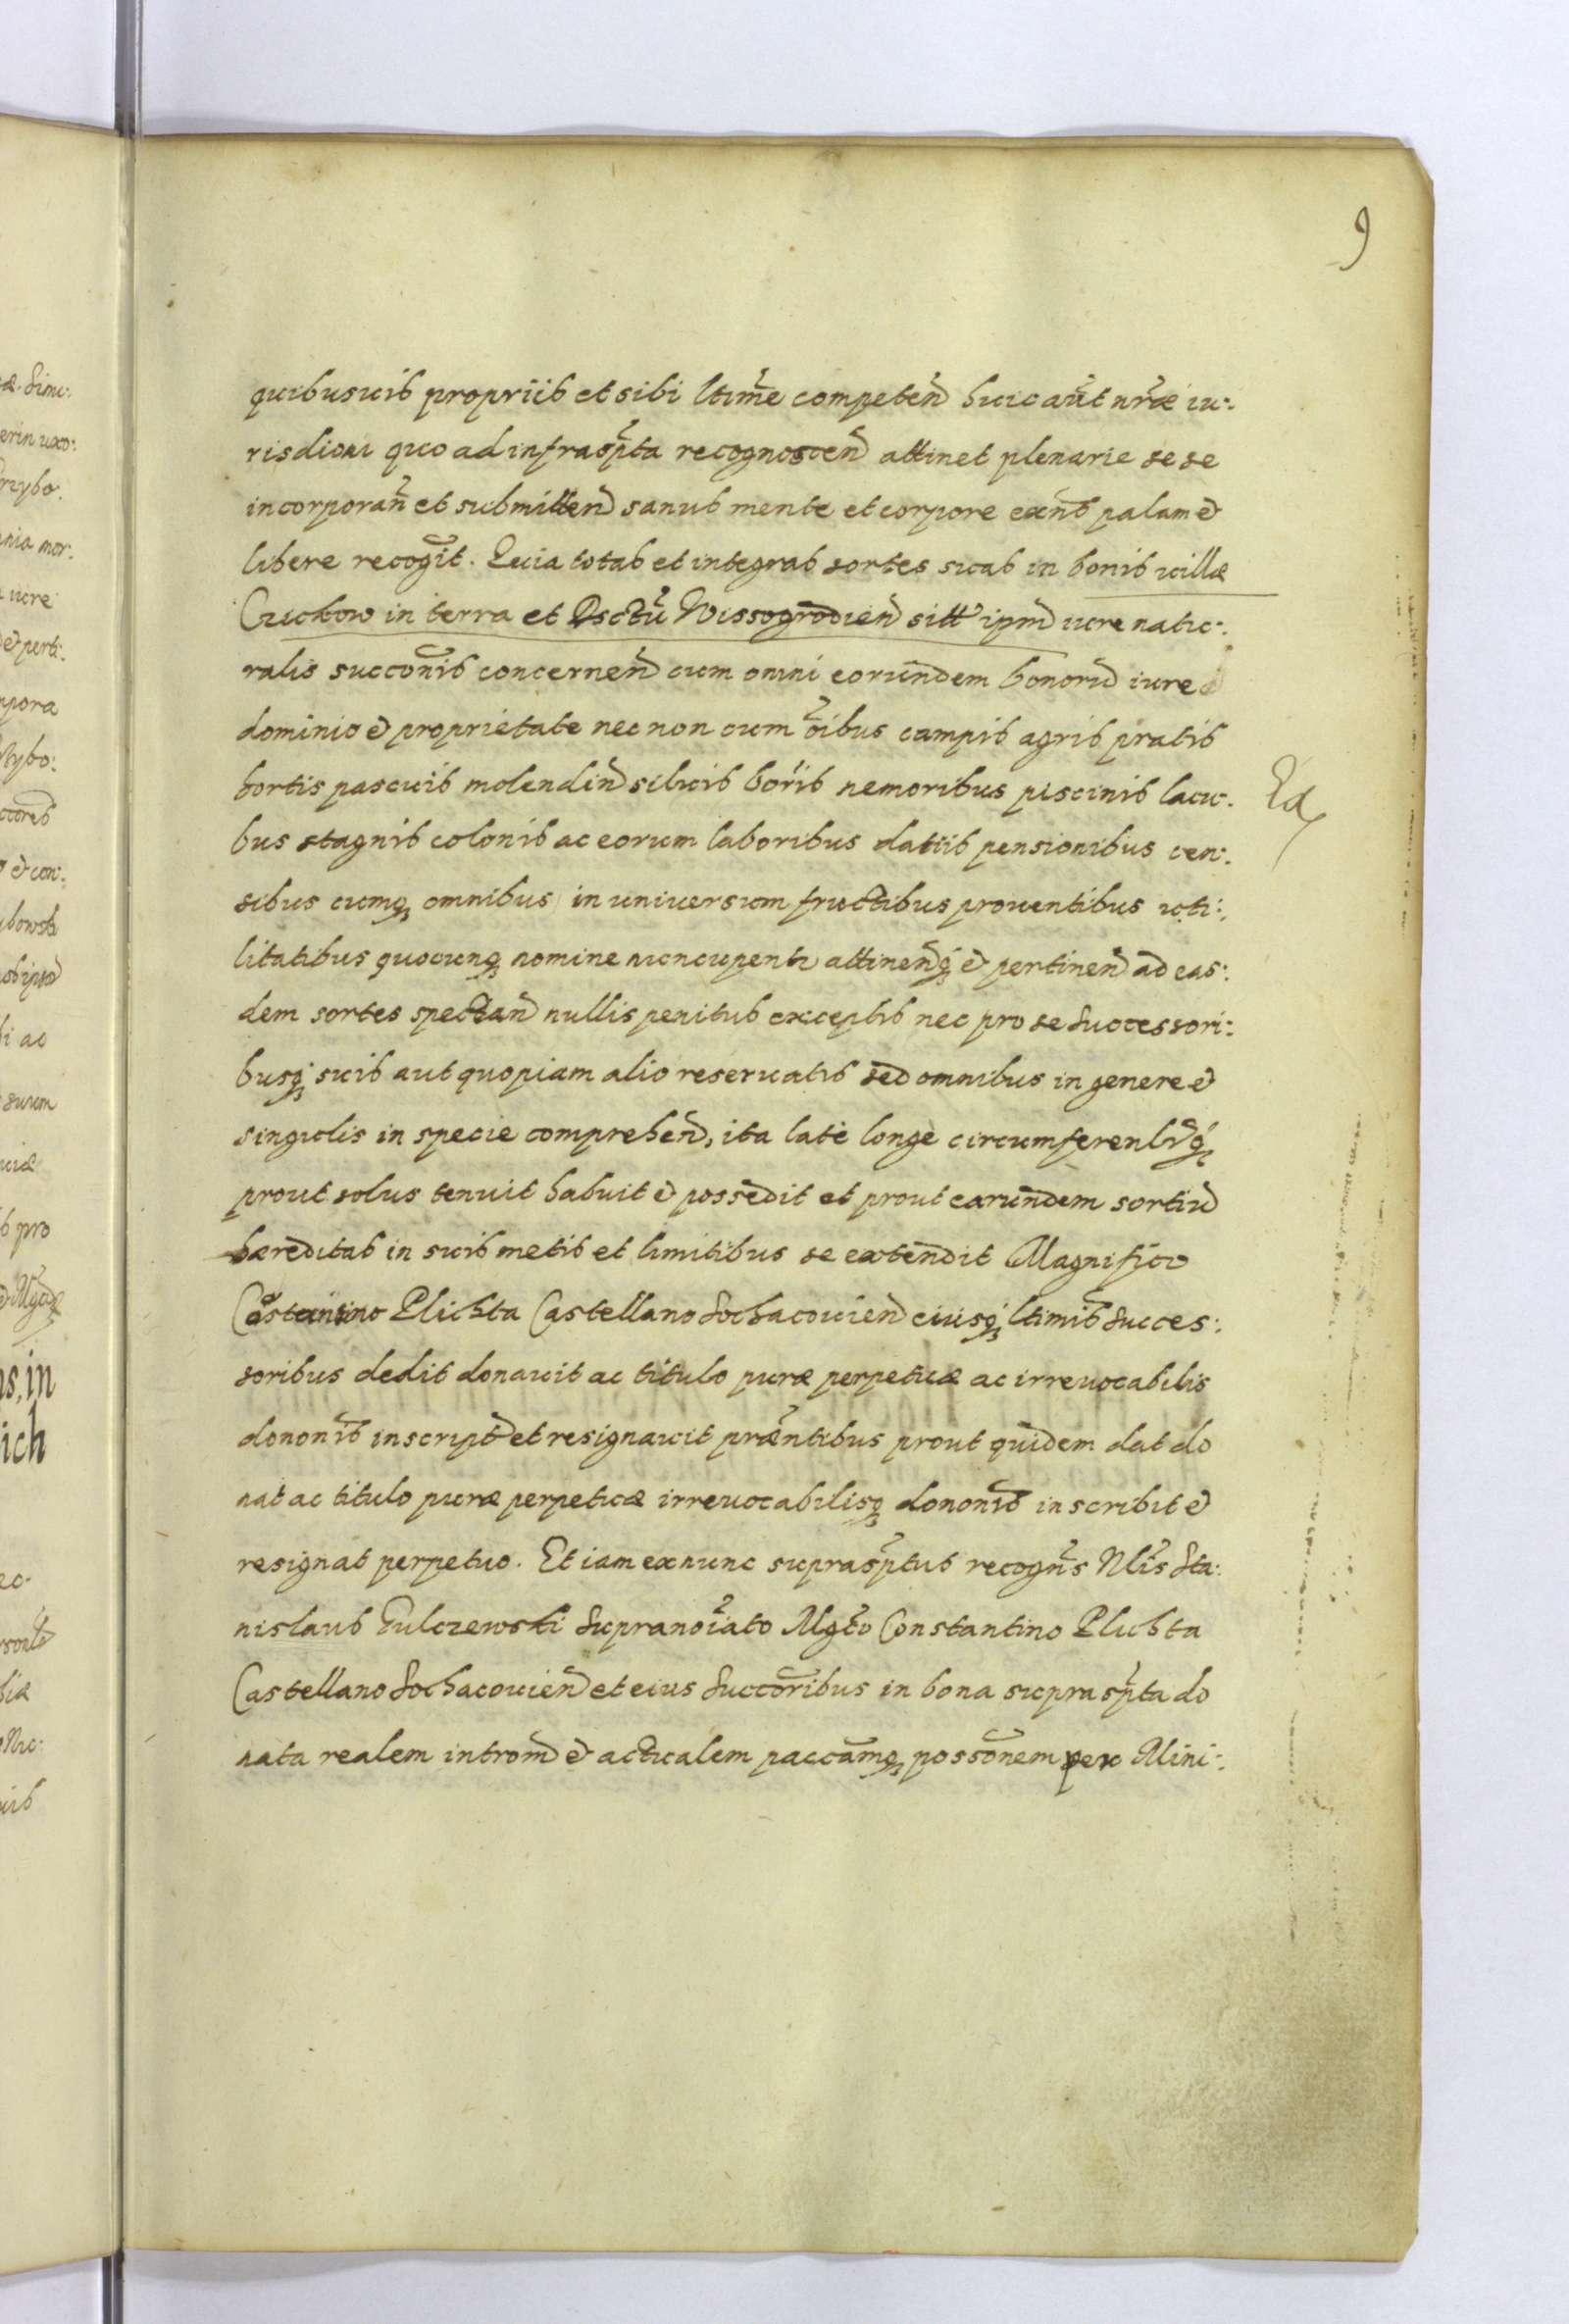 9
quibusuis propriis et sibi ltime competen huic autt nræ iu:
risdioni quo ad infrasspta recognoscen attinet plenarie sese
incorporan et submitten sanus mente et corpore exns palam et
libere recogit. Quia totas et integras sortes suas in bonis uillæ
Cuckow in terra et Dsctu Wissogrodien sitt ipm iure natu:
ralis succonis concernen cum omni eorundem bonoru iure
dominio et proprietate nec non cum oibus campis agris pratis
hortis pascuis molendin siluis boris nemoribus piscinis lacu:
bus stagnis colonis ac eorum laboribus datiis pensionibus cen:
sibus cumq omnibus in uniuersum fructibus prouentibus uti:
litatibus quocunq nomine nuncupentur attinenq et pertinen ad eas:
dem sortes spectan nullis penitus exceptis nec pro se Successori:
busq suis aut quopiam alio reseruatis sed omnibus in genere et
singulis in specie comprehen, ita late longe circumferenlrq
prout solus tenuit habuit et possedit et prout earundem sortiu
hæreditas in suis metis et limitibus se extendit Magnifico
Costantino Plichta Castellano Sochacouien eiusq ltimis Succes:
soribus dedit donauit ac titulo puræ perpetuæ ac irreuocabilis
dononis inscript et resignauit præntibus prout quidem dat do
nat ac titulo puræ perpetuæ irreuocabilisq dononis inscribit et
resignat perpetuo. Et iam exnunc suprasptus recogns Nlis Sta:
nislaus Gulczewski Supranoiato Mgco Constantino Plichta
Castellano Sochacouien et eius Succoribus in bona suprasspta do
nata realem introm et actualem paccamq possonem per Mini: